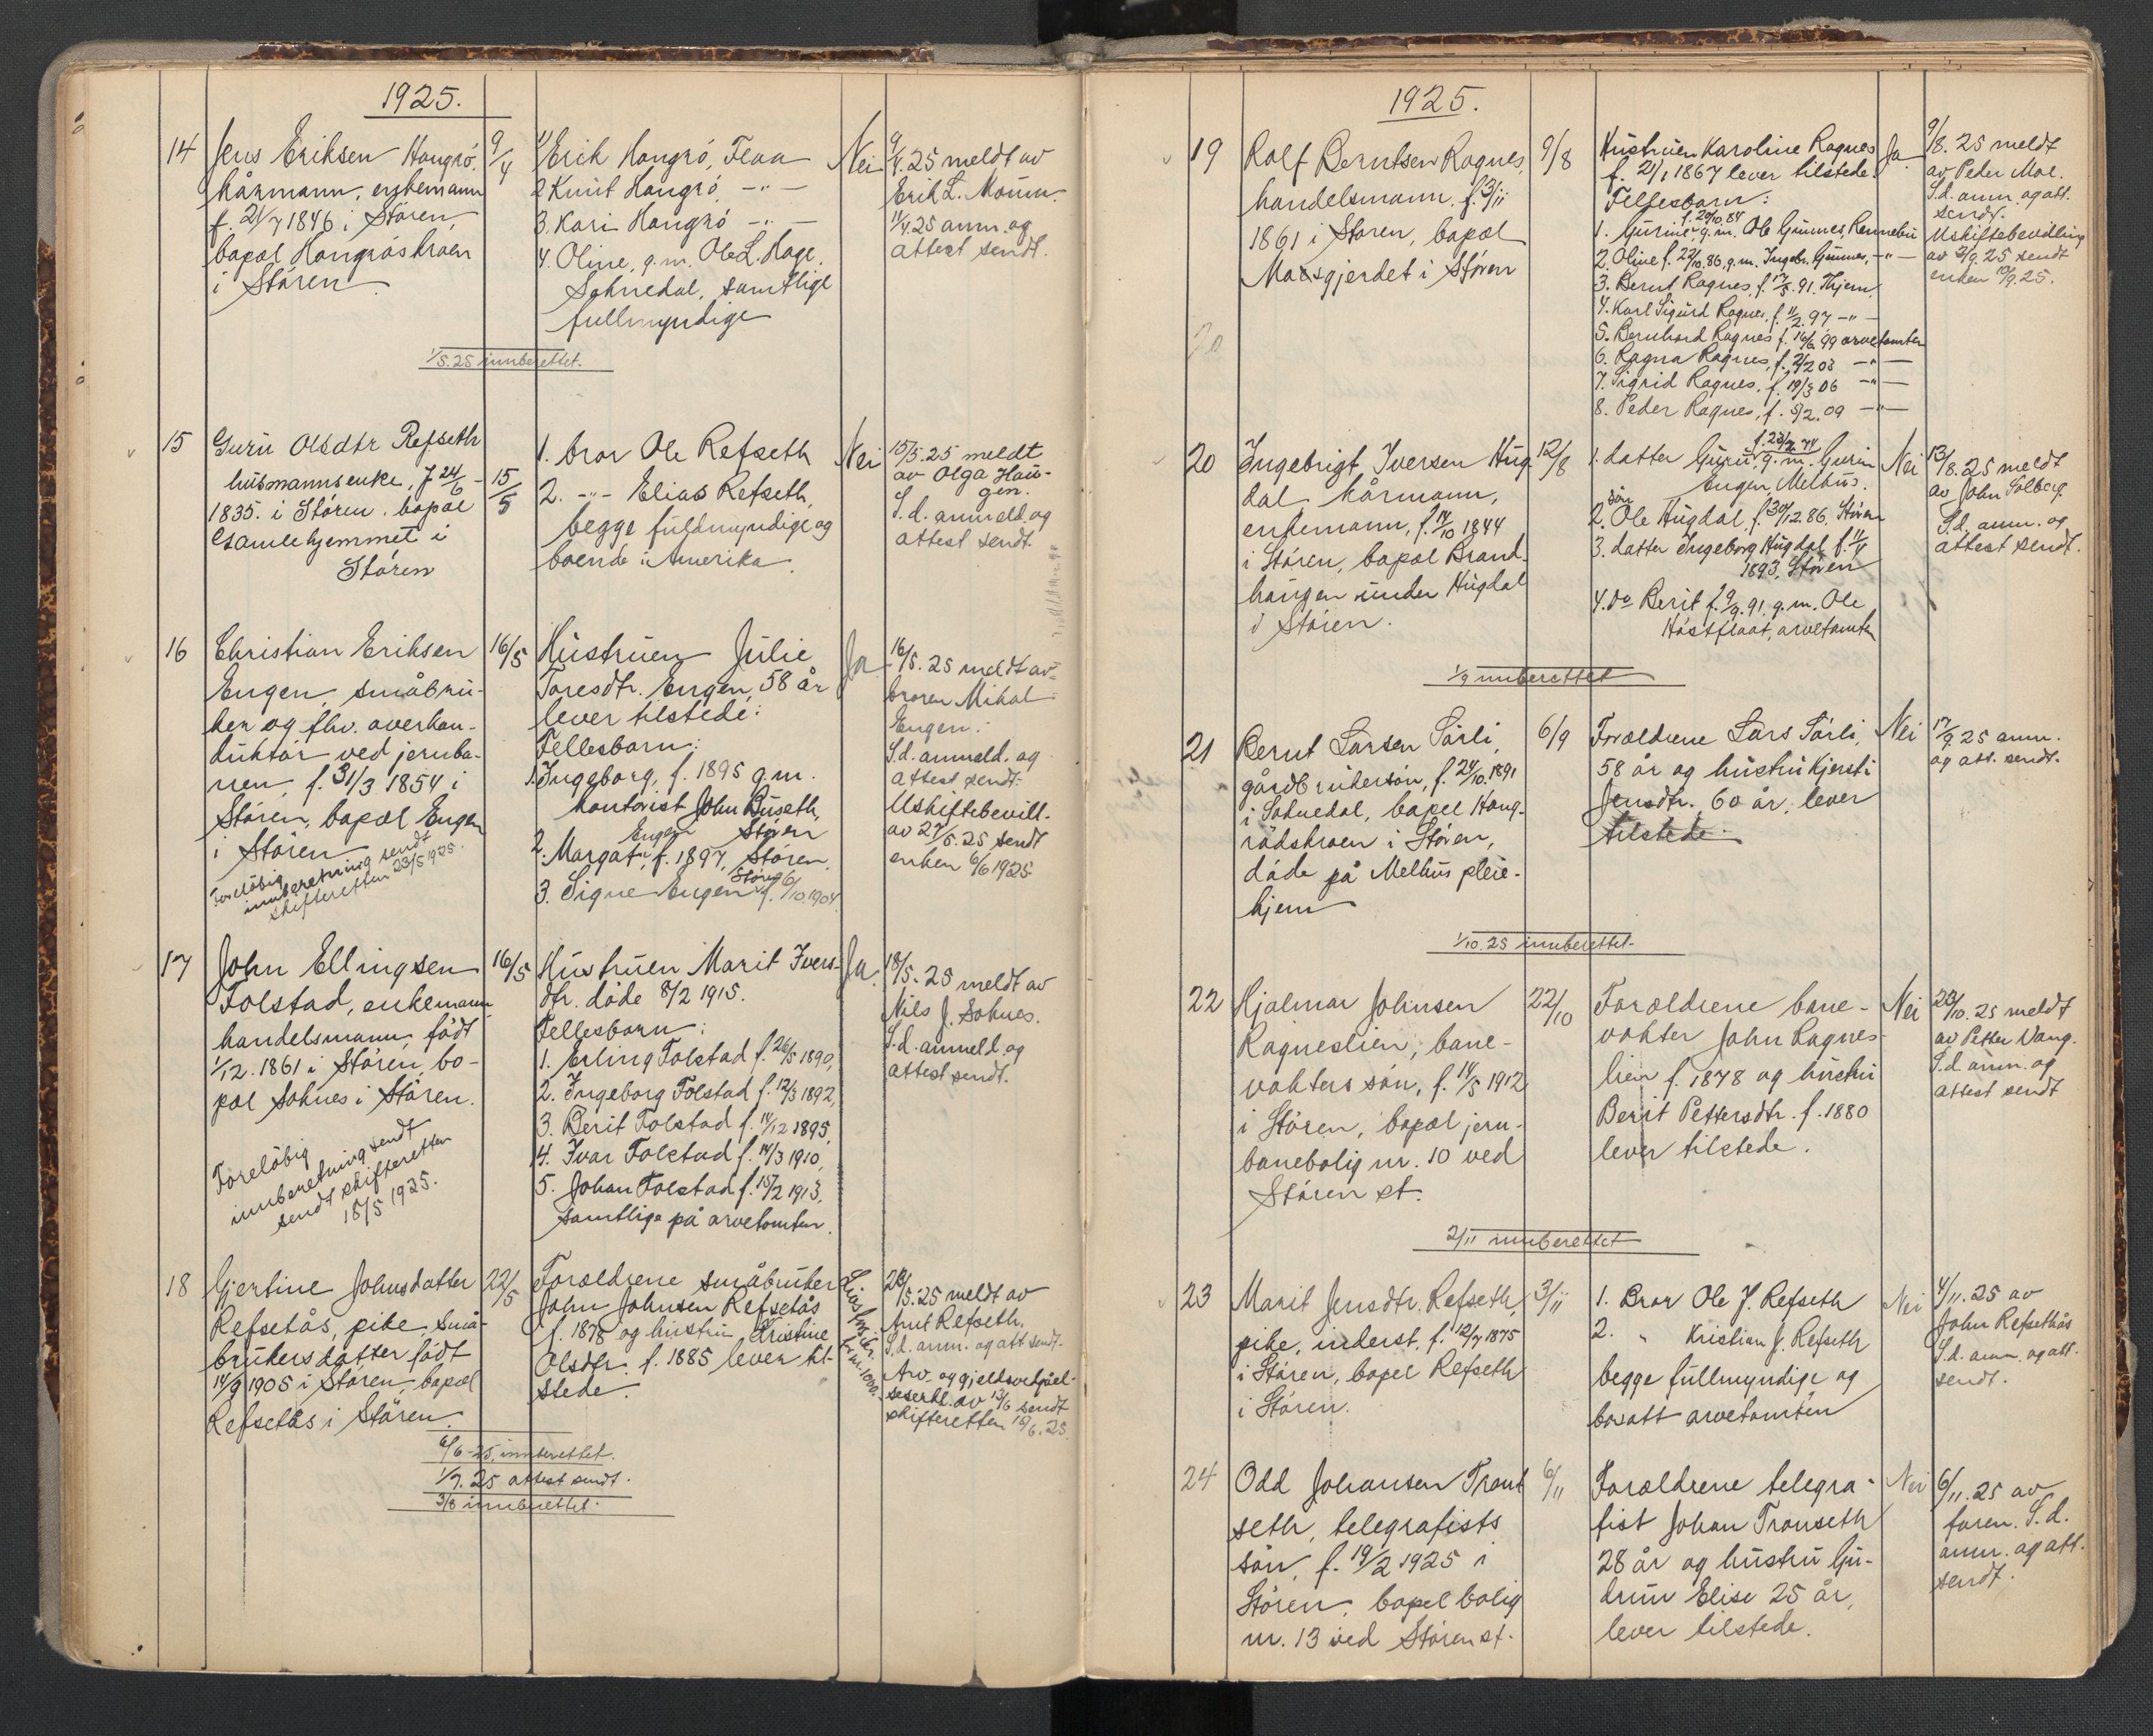 1925.
14
Jens Eriksen Haugrø.
kårmann, enkemann
f. 21/7 1846 i Støren,
bopæl Haugrøskroen
i Støren
9/4
1/ Erik Haugrø, Flaa
2 Knut Haugrø, -"-
3. Kari Haugrø -"-
4. Oline, g.m. Ole L. Hage.
Soknedal, samtlige
fullmyndige
Nei
9/4.25 meldt av
Erik L. Moum.
11/4.25 anm. og
attest sendt.
1/5.25 innberettet.
15
Guru Olsdtr Refseth
husmannsenke, f 24/6 -
1835. i Støren. bopæl
Gamlehjemmet i
Støren
15/5
1. bror Ole Refseth
2. -"- Elias Refseth,
begge fuldmyndige og
boende i Amerika.
Nei
15/5.25 meldt
av Olga Hau-
gen.
S.d. anmeld. og
attest sendt.
16
Christian Eriksen
Engen, småbru-
ker og fhv. overkon-
duktør ved jernba-
nen, f. 31/3 1854 i
Støren, bopæl Engen
i Støren
Foreløbig
innberetning sendt
skifteretten 23/5 1925.
16/5
Hustruen Julie
Toresdtr. Engen, 58 år
lever tilstede:
Fellesbarn:
1. Ingeborg, f. 1895 g.m.
kontorist John Buseth,
Støren
2. Margat Engen, f. 1897, Støren.
3. Signe Engen, Støren f. 6/10.1904
Ja
16/5.25 meldt av
broren Mikal
Engen.
S.d. anmeld. og
attest sendt.
Uskiftebevill.
av 27/5.25 sendt
enken 6/6 1925.
17
John Ellingsen
Folstad, enkemann
handelsmann, født
1/12. 1861 i Støren, bo-
pæl Soknes i Støren.
Foreløbig
innberetning sendt
sendt skifteretten
18/5 1925.
16/5
Hustruen Marit Ivers-
dtr. døde 8/2 1915.
Fellesbarn:
1. Erling Folstad f. 26/5 1890,
2. Ingeborg Folstad f. 12/3 1892,
3. Berit Folstad f. 14/12 1895,
4. Ivar Folstad f. 14/3 1910,
5. Johan Folstad f. 15/2 1913,
samtlige på arvetomten.
Ja.
18/5.25 meldt av
Nils J. Soknes.
S.d. anmeld. og
attest sendt.
18
Gjertine Johnsdatter
Refsetås, pike, små-
brukersdatter født
14/9 1905 i Støren, bopæl
Refsetås i Støren.
22/5
Foreldrene småbruker
John Johnsen Refsetås
f. 1878 og hustru Kristine
Olsdtr. f. 1885 lever til-
stede.
28/5.25 meldt av
Arnt Refseth.
S.d. anm. og att sendt.
Arv og gjeldsvedgåel-
seserkl. av 12/6 sendt
skifteretten 18/6.25.
6/6-25, innberettet.
1/7.25 attest sendt.
3/8 innberettet.
1925.
19
Rolf Berntsen Rognes,
handelsmann. f. 3/11
1861 i Støren, bopæl
Moesgjerdet i Støren
9/8
Hustruen Karoline Rognes
f. 21/1 1867 lever tilstede.
Fellesbarn:
1. Gurine, f. 20/10.84 g.m. Ole Gunnes, Rennebu
2. Oline f. 22/10.86, g.m. Ingebr. Gunnes, -"-
3. Bernt Rognes, f. 17/5.91. Hjem.
4. Karl Sigurd Rognes, f. 11/2.97 -"-
5. Bernhard Rognes f. 16/6 99 arvetomten
6. Ragna Rognes, f. 2/2 03 -"-
7. Sigrid Rognes, f. 19/3 06 -"-
8. Peder Rognes, f. 5/2.09 -"-
Ja
9/8.25 meldt
av Peder Moe.
S.d. anm. og att.
sendt.
Uskiftebevilling
av 3/9.25 sendt
enken 10/9.25.
20
20
Ingebrigt Iversen Hug-
dal, kårmann,
enkemann, f. 14/10 1844
i Støren, bopæl Brand-
haugen under Hugdal
i Støren.
12/8
1. datter Guru, g.m. Gurin
Engen, Melhus.
2. søn Ole Hugdal, f. 30/12.86. Støren
3. datter Ingeborg Hugdal f. 11/4
1893, Støren
4. do Berit f. 9/9.91. g.m. Ole
Høstflaat, arvetomten
Nei
13/8.25 meldt
av John Solberg.
S.d. anm. og
attest sendt.
1/9 innberettet
21
Bernt Larsen Sørli,
gårdbrukersøn, f. 24/10.1891
i Soknedal, bopæl Haug-
rødskroen i Støren,
døde på Melhus pleie-
hjem
6/9
Foreldrene Lars Sørli,
58 år og hustru Kjersti
Jensdtr. 60 år, lever
tilstede.
Nei
17/9.25 anm.
og att. sendt.
1/10.25 innberettet.
22
Hjalmar Johnsen
Rogneslien, bane-
vokters søn, f. 14/5 1912
i Støren, bopæl jern-
banebolig nr. 10 ved
Støren st.
22/10
Foreldrene bane-
vokter John Rognes-
lien f. 1878 og hustru
Berit Pettersdtr. f. 1880
lever tilstede.
Nei
23/10.25 meldt
av Petter Vang.
S.d. anm. og
attest sendt
2/11 innberettet
23
Marit Jensdtr. Refseth,
pike, inderst, f. 12/7 1875
i Støren, bopæl Refseth
i Støren.
3/11
1. Bror Ole J. Refseth
2. " Kristian J. Refseth
begge fullmyndige og
bosatt arvetomten
Nei
4/11.25 av
John Refsethås
S.d. anm. og att.
sendt.
24
Odd Johansen Tron-
seth, telegrafists
søn, f. 19/2 1925 i
Støren, bopæl bolig
nr. 13 ved Støren st.
6/11
Foreldrene telegra-
fist Johan Tronseth
28 år og hustru Gu-
drun Elise 25 år,
lever tilstede.
Nei
6/11.25 av
faren. S.d.
anm. og att.
sendt.